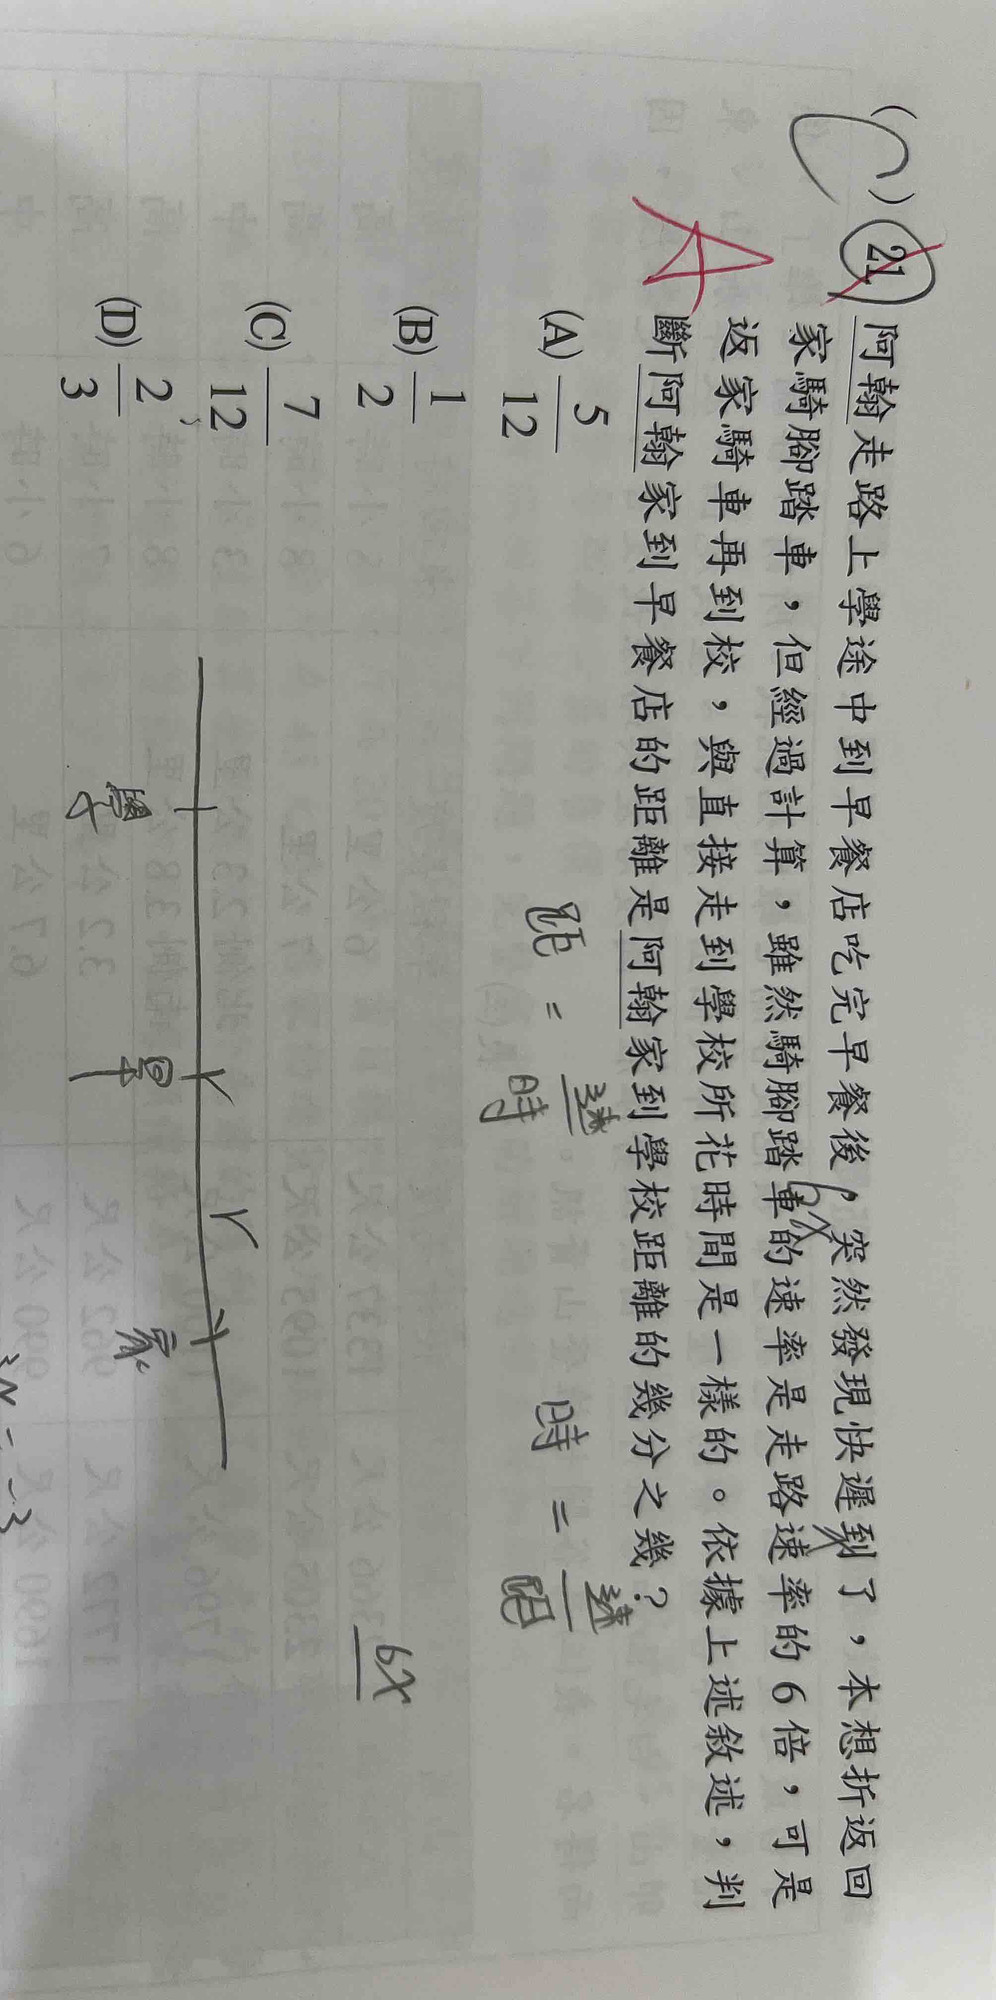 ( ) 21 阿翰走路上學途中到早餐店吃完早餐後，突然發現快遲到了，本想折返回
家騎腳踏車，但經過計算，雖然騎腳踏車的速率是走路速率的6倍，可是
返家騎車再到校，與直接走到學校所花時間是一樣的。依據上述敘述，判
斷阿翰家到早餐店的距離是阿翰家到學校距離的幾分之幾？
A
6x
x
(A) 5/12
(B) 1/2
(C) 7/12
(D) 2/3
距 = 速/時
時 = 速/距
6x
學
早
家